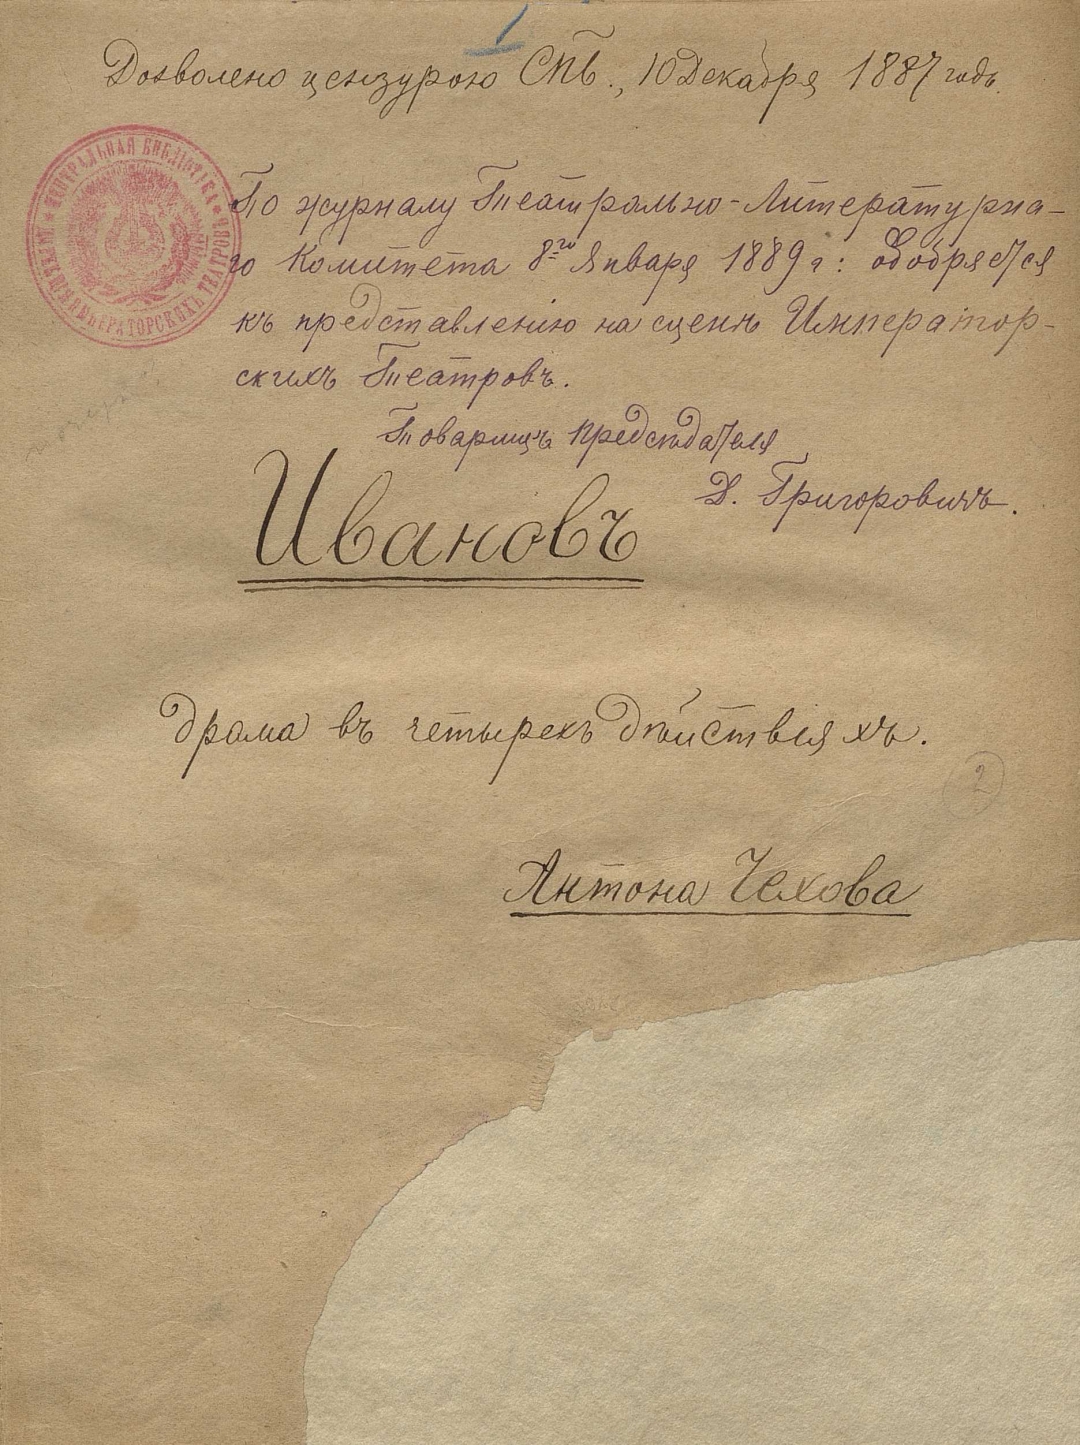 1
Дозволено цензурою СПб., 10 Декабря 1887 годъ.
ЦЕНТРАЛЬНАЯ БИБЛІОТЕКА
ИМПЕРАТОРСКИХЪ ТЕАТРОВЪ
По журналу Театрально-Литературна-
го Комитета 8го Января 1889 г: одобряется
къ представленію на сценѣ Император-
скихъ Театровъ.
Товарищъ Председателя
Д. Григоровичъ.
Ивановъ
драма въ четырехъ дѣйствіяхъ.
2
Антона Чехова